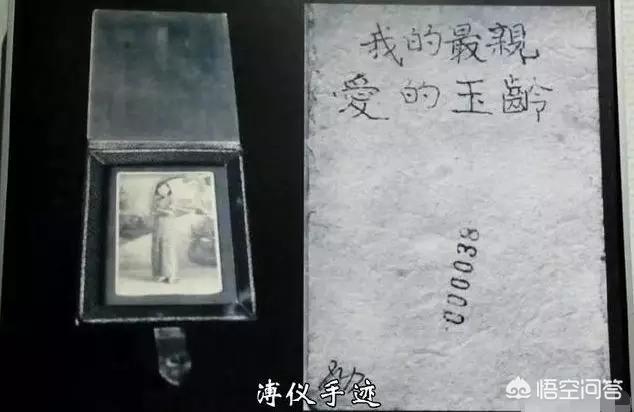 我的最親
愛的玉齡
000038
溥仪手迹
悟空问答